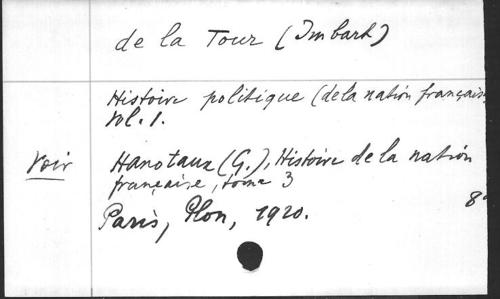 de la Tour (Imbart)
Histoire politique (de la nation française
Vol. 1.
Voir Hanotaux (G.), Histoire de la nation
française, tome 3
8°
Paris, Plon, 1920.